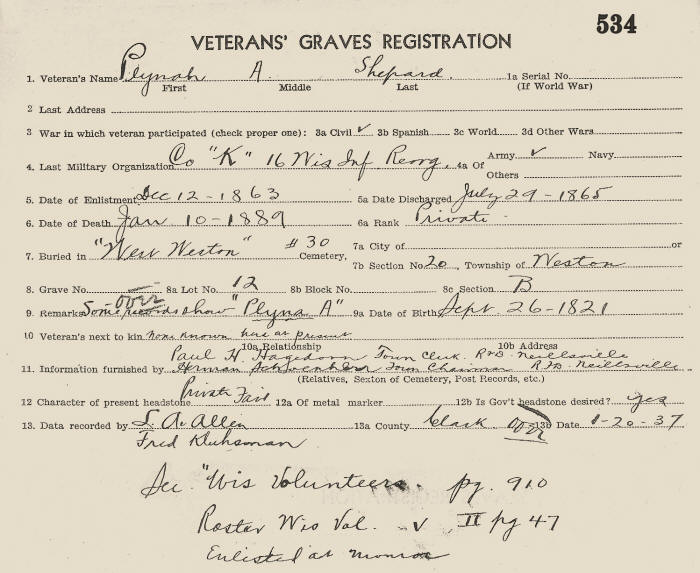 534
VETERANS' GRAVES REGISTRATION
1. Veteran's Name Plynah A. Shepard. 1a Serial No.
First Middle Last (If World War)
2 Last Address
3 War in which veteran participated (check proper one): 3a Civil ✓ 3b Spanish 3c World 3d Other Wars
4. Last Military Organization Co "K" 16 Wis Inf Reorg. 4a Of Army ✓ Navy
Others
5. Date of Enlistment Dec 12-1863 5a Date Discharged July 29-1865
6. Date of Death Jan 10-1889 6a Rank Private
7. Buried in "West Weston" #30 Cemetery, 7a City of or
7b Section No. 20, Township of Weston
8. Grave No. — 8a Lot No. 12 8b Block No. 8c Section B
over
9. Remarks Some records show "Plyna A" 9a Date of Birth Sept. 26-1821
10 Veteran's next to kin none known here at present
10a Relationship 10b Address
Paul H. Hagedorn Town Clerk. RFD. Neillsville
11. Information furnished by Herman Town Chairman RFD. Neillsville
(Relatives, Sexton of Cemetery, Post Records, etc.)
12 Character of present headstone Private Fair 12a Of metal marker 12b Is Gov't headstone desired? yes
13. Data recorded by L. A. Allen 13a County Clark over 13b Date 1-20-37
Fred Kluhsman
See "Wis Volunteers. pg. 910
Roster Wis Vol. - v II pg 47
Enlisted at Monroe